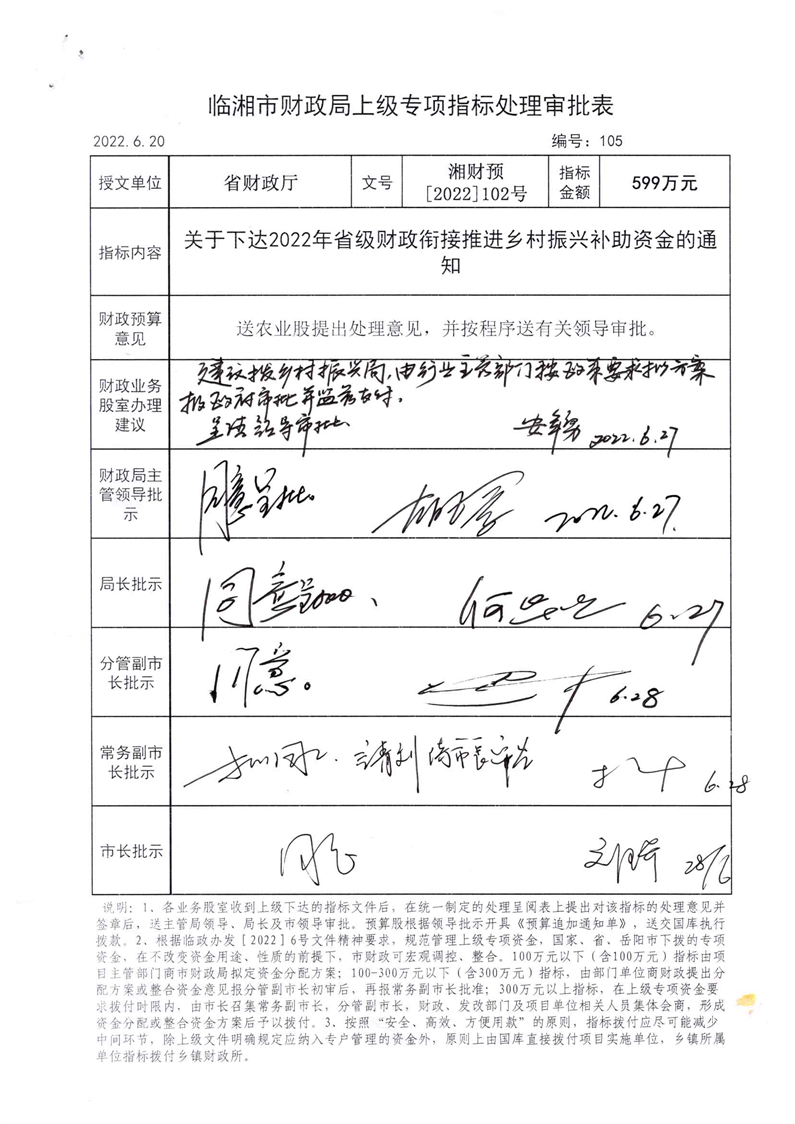 临湘市财政局上级专项指标处理审批表
2022.6.20 编号：105
授文单位 省财政厅 文号 湘财预[2022]102号 指标金额 599万元
指标内容 关于下达2022年省级财政衔接推进乡村振兴补助资金的通
知
财政预算
意见
送农业股提出处理意见，并按程序送有关领导审批。
财政业务
股室办理
建议
建议拨乡村振兴局，由行业主管部门按政策要求拟方案
报政府审批并监管支付。
呈请领导审批
2022.6.27
财政局主
管领导批
示
同意呈批。 2022.6.27.
局长批示 同意 6.27
分管副市
长批示
同意。 6.28
常务副市
长批示
6.28
市长批示 同意 28/6
说明：1、各业务股室收到上级下达的指标文件后，在统一制定的处理呈阅表上提出对该指标的处理意见并
签章后，送主管局领导、局长及市领导审批。预算股根据领导批示开具《预算追加通知单》，送交国库执行
拨款。2、根据临政办发[2022]6号文件精神要求，规范管理上级专项资金，国家、省、岳阳市下拨的专项
资金，在不改变资金用途、性质的前提下，市财政可宏观调控、整合。100万元以下（含100万元）指标由项
目主管部门商市财政局拟定资金分配方案；100-300万元以下（含300万元）指标，由部门单位商财政提出分
配方案或整合资金意见报分管副市长初审后，再报常务副市长批准；300万元以上指标，在上级专项资金要
求拨付时限内，由市长召集常务副市长，分管副市长，财政、发改部门及项目单位相关人员集体会商，形成
资金分配或整合资金方案后予以拨付。3、按照“安全、高效、方便用款”的原则，指标拨付应尽可能减少
中间环节，除上级文件明确规定应纳入专户管理的资金外，原则上由国库直接拨付项目实施单位，乡镇所属
单位指标拨付乡镇财政所。